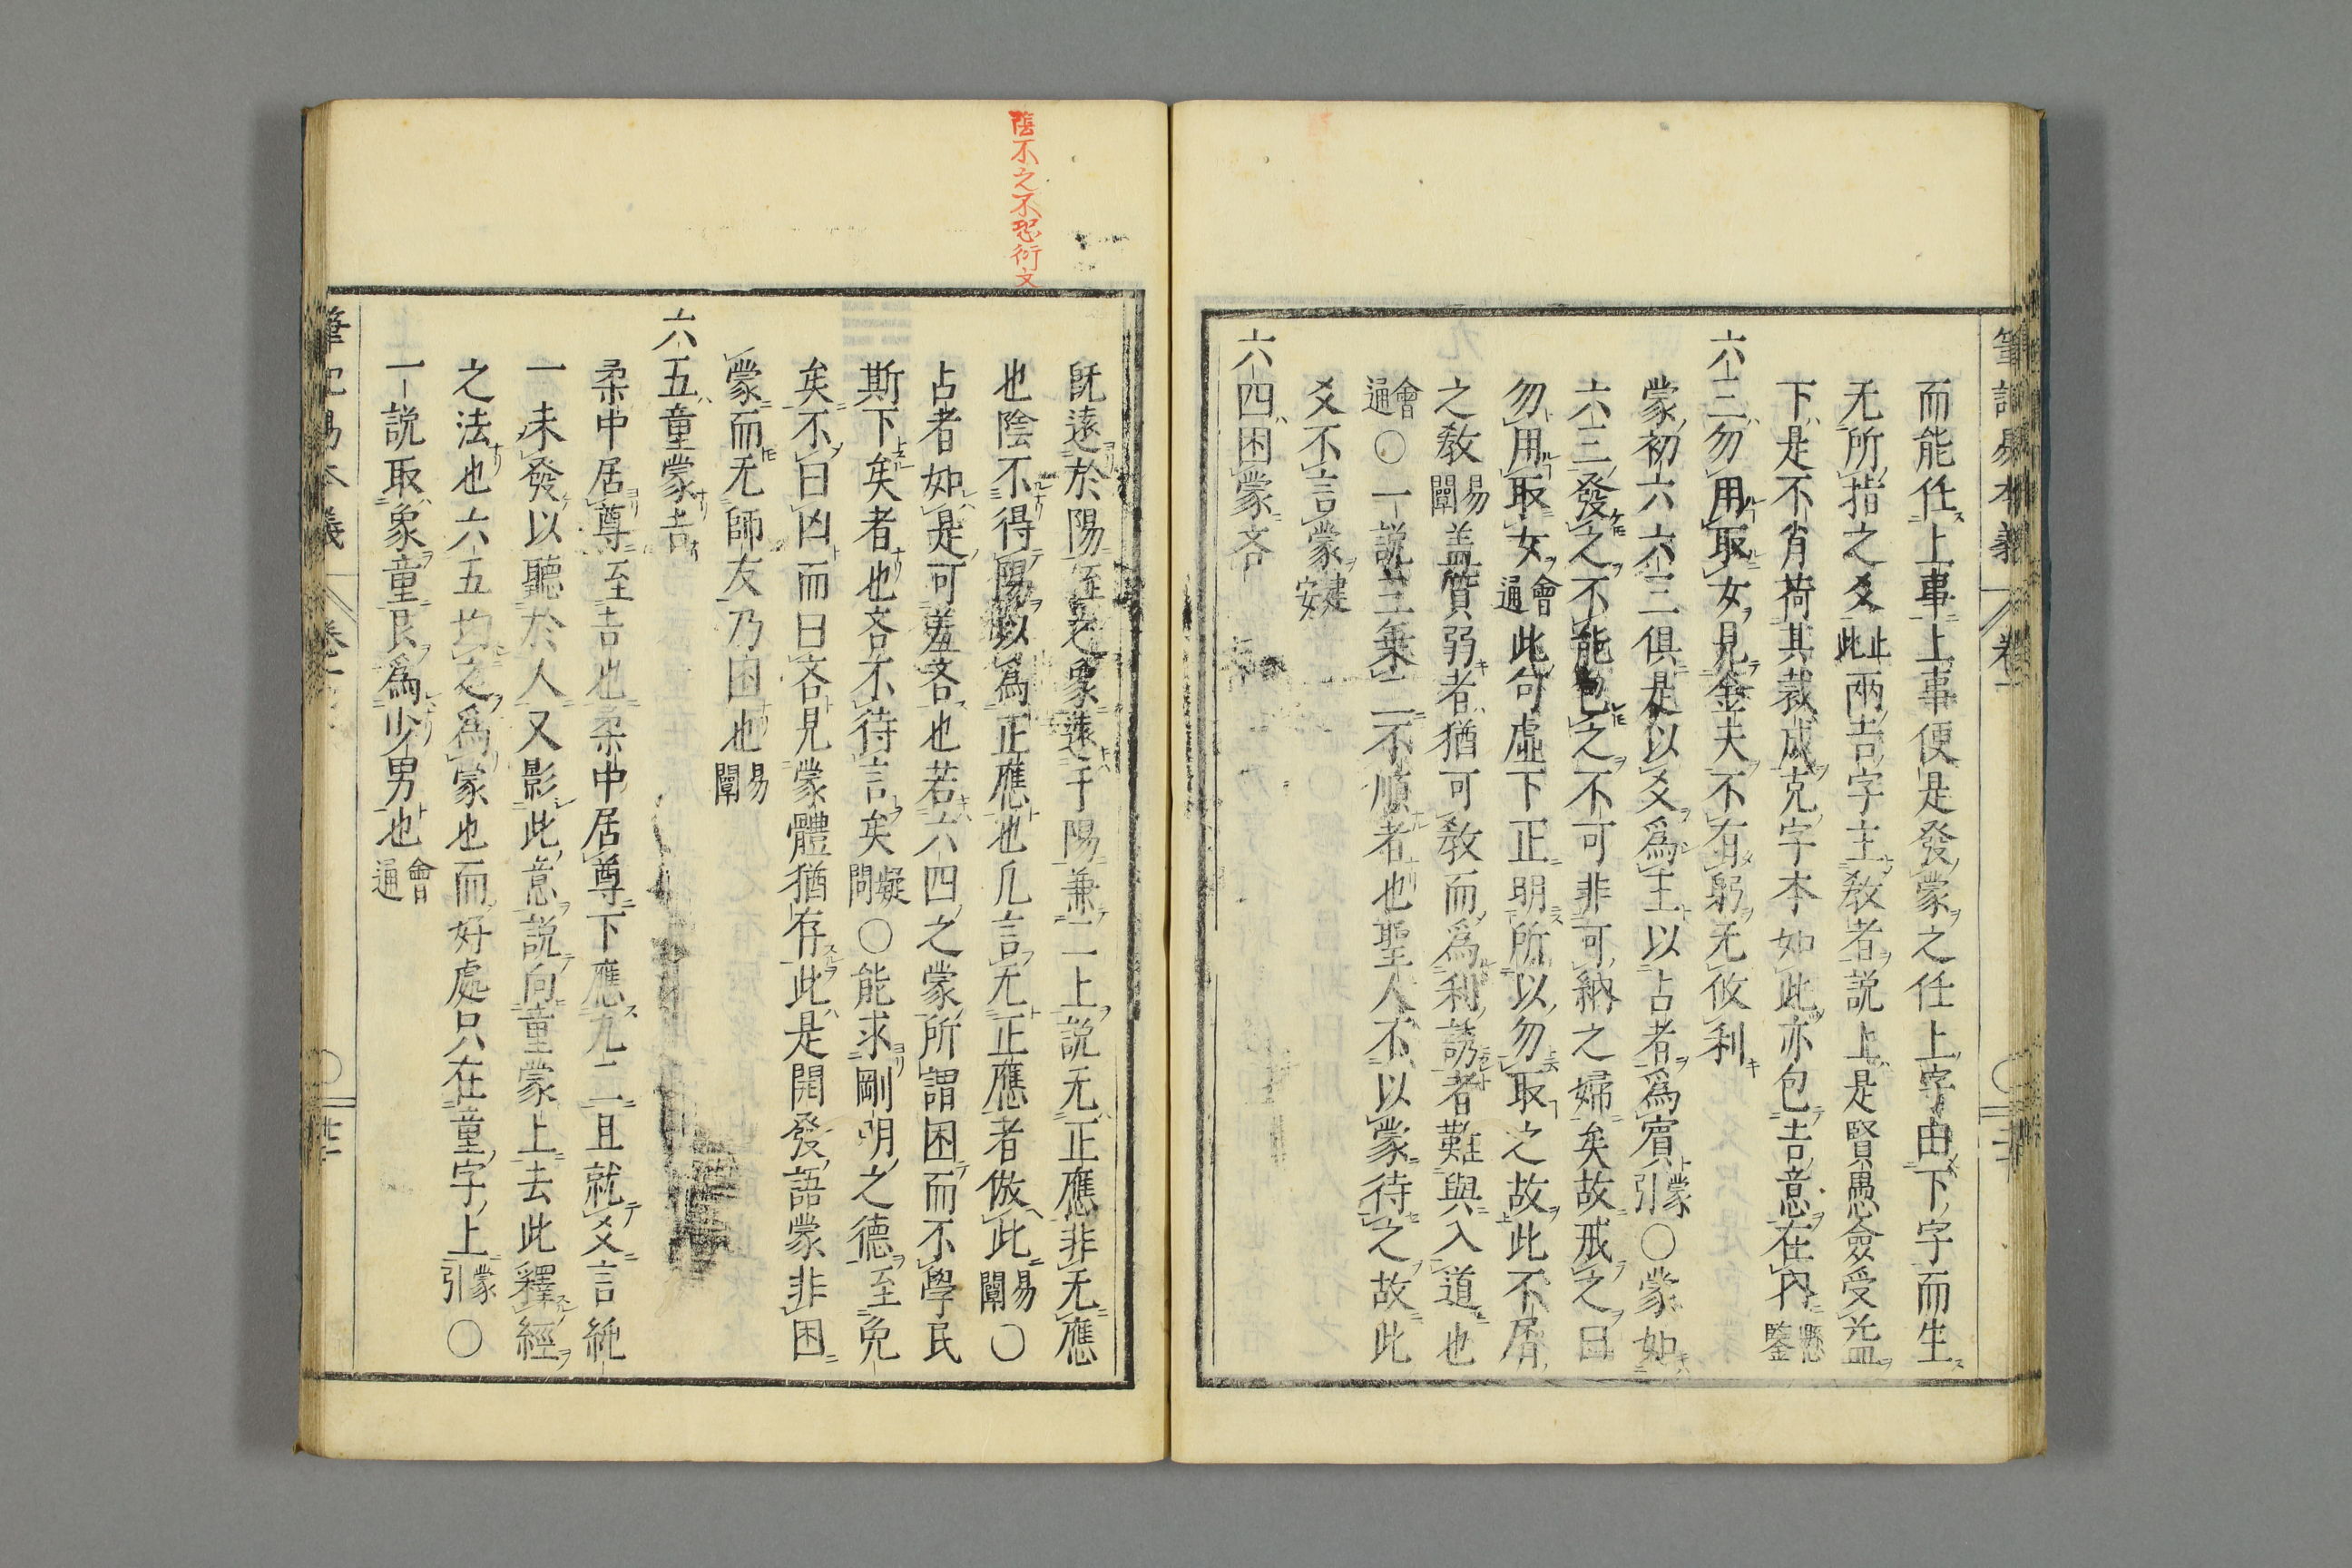 而能任上事上事便是發蒙之任上字由下字而生
无所指之爻此止兩吉字主教者説上是賢愚僉受益
下是不肖荷其裁成克字本如此亦包吉意在內懸鑒
六三勿用取女見金夫不有躬无攸利
蒙初六六三俱是以爻爲主以占者爲賓蒙引〇蒙如
六三發之不能包之不可非可納之婦矣故戒之曰
勿用取女會通此句虛下正明所以勿取之故此不屑
之敎易闡盖質弱者猶可敎而爲利誘者難與入道也
會通〇一説三乗二不順者也聖人不以蒙待之故此
爻不言蒙建安
六四困蒙吝
旣遠於陽至之象遠于陽兼二上説无正應非无應
也陰不得陽以爲正應也凡言无正應者倣此易闡〇
占者如是可羞吝也若六四之蒙所謂困而不學民
斯下矣者也吝不待言矣疑問〇能求剛明之德至免
矣不曰凶而曰吝見蒙體猶存此是開發語蒙非困
蒙而无師友乃困也易闡
六五童蒙吉
柔中居尊至吉也柔中居尊下應九二且就爻言純
一未發以聽於人又影此意説向童蒙上去此釋經
之法也六五均之爲蒙也而好處只在童字上蒙引〇
一説取象童艮爲少男也會通
陰不之不恐衍文